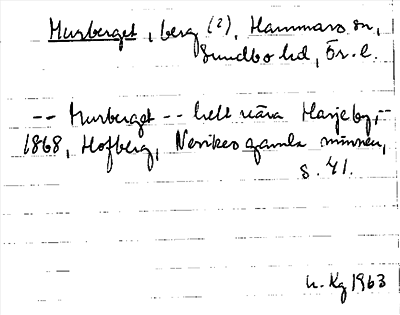 Murberget, berg (?), Hammars sn,
Sundbo hd, Ör. l.
-- Murberget -- helt nära Harjeby, --
1868, Hofberg, Nerikes gamla minnen,
s. 41.
h. Kg 1963